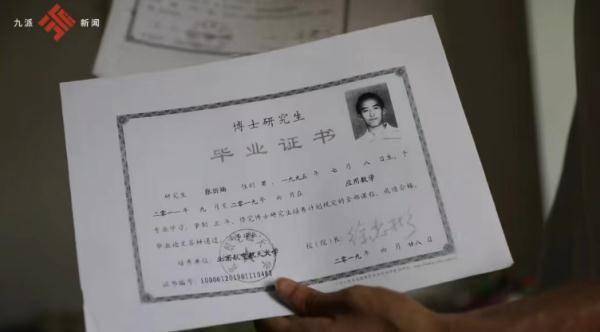 九派 新闻
博士研究生
毕业证书
研究生 张炘炀 性别 男，一九九五年 七月 八日生，于
二〇一一年 九月至二〇一九年 月在 应用数学
专业学习，学制 三 年，修完博士研究生培养计划规定的全部课程，成绩合格，
毕业论文答辩通过，
培养单位：北京航空航天大学
校（院）长：徐惠彬
证书编号：
二〇一九年 月 廿八日